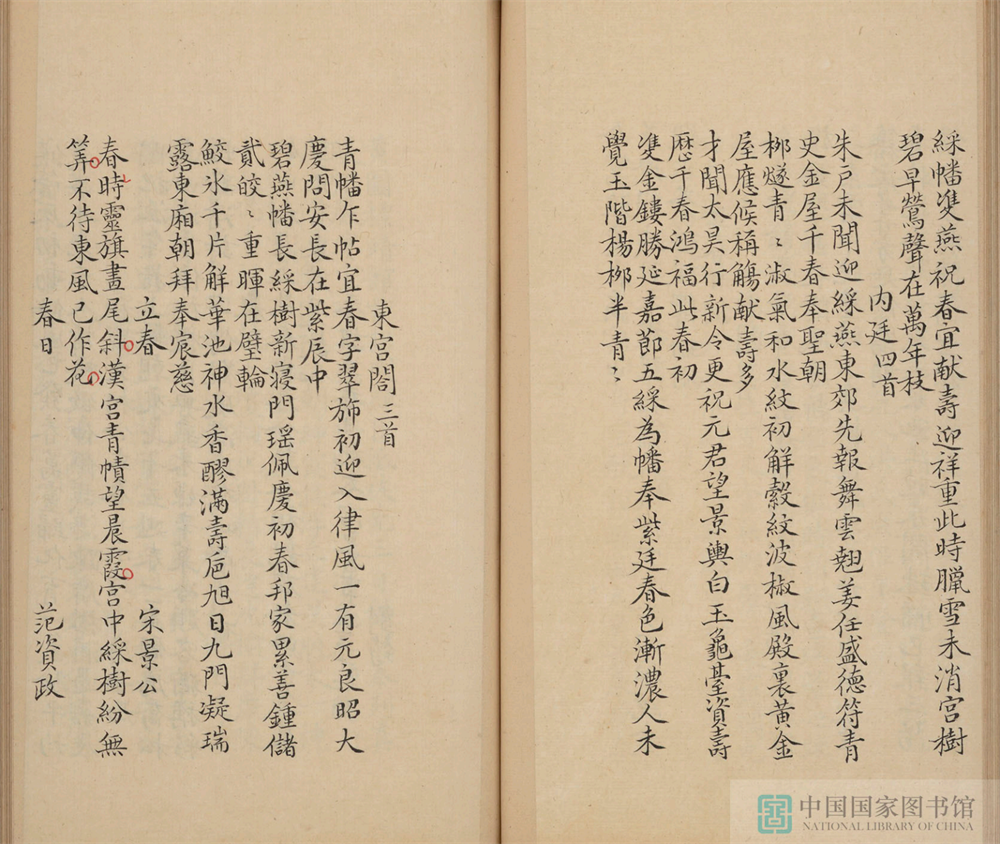 綵幡雙燕祝春宜献壽迎祥重此時臘雪未消宮樹
碧早鶯聲在萬年枝
内廷四首
朱戸未聞迎綵燕東郊先報舞雲翹姜任盛德符青
史金屋千春奉聖朝
栁燧青〻淑氣和水紋初解縠紋波椒風殿裏黃金
屋應候稱觴献壽多
才聞太昊行新令更祝元君望景輿白玉龜臺資壽
歴千春鴻福此春初
雙金鏤勝延嘉節五綵為幡奉紫廷春色漸濃人未
覺玉階楊栁半青〻
東宮閤三首
青幡乍帖宜春字翠斾初迎入律風一有元良昭大
慶問安長在紫辰中
碧燕幡長綵樹新寢門瑶佩慶初春邦家累善鍾儲
貳皎〻重暉在璧輪
鮫氷千片解華池神水香醪滿壽巵旭日九門凝瑞
露東廂朝拜奉宸慈
立春 宋景公
春時靈旗畫尾斜漢宮青幘望晨霞宮中綵樹紛無
筭不待東風已作花
春日 范資政
中国国家图书馆
NATIONAL LIBRARY OF CHINA